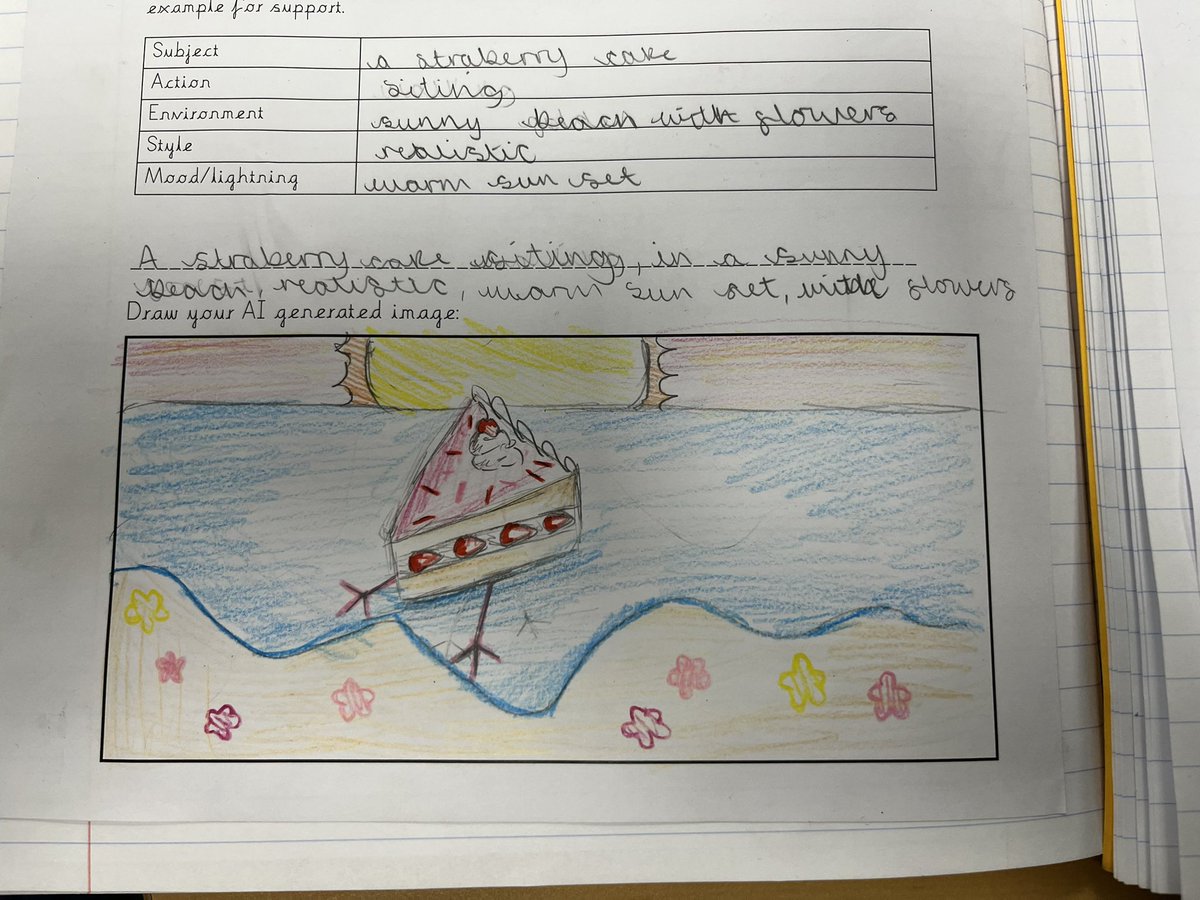 example for support.
Subject a straberry cake
Action siting
Environment sunny beach with flowers
Style realistic
Mood/lightning warm sun set
A straberry cake siting, in a sunny
beach realistic, warm sun set, with flowers
Draw your AI generated image: